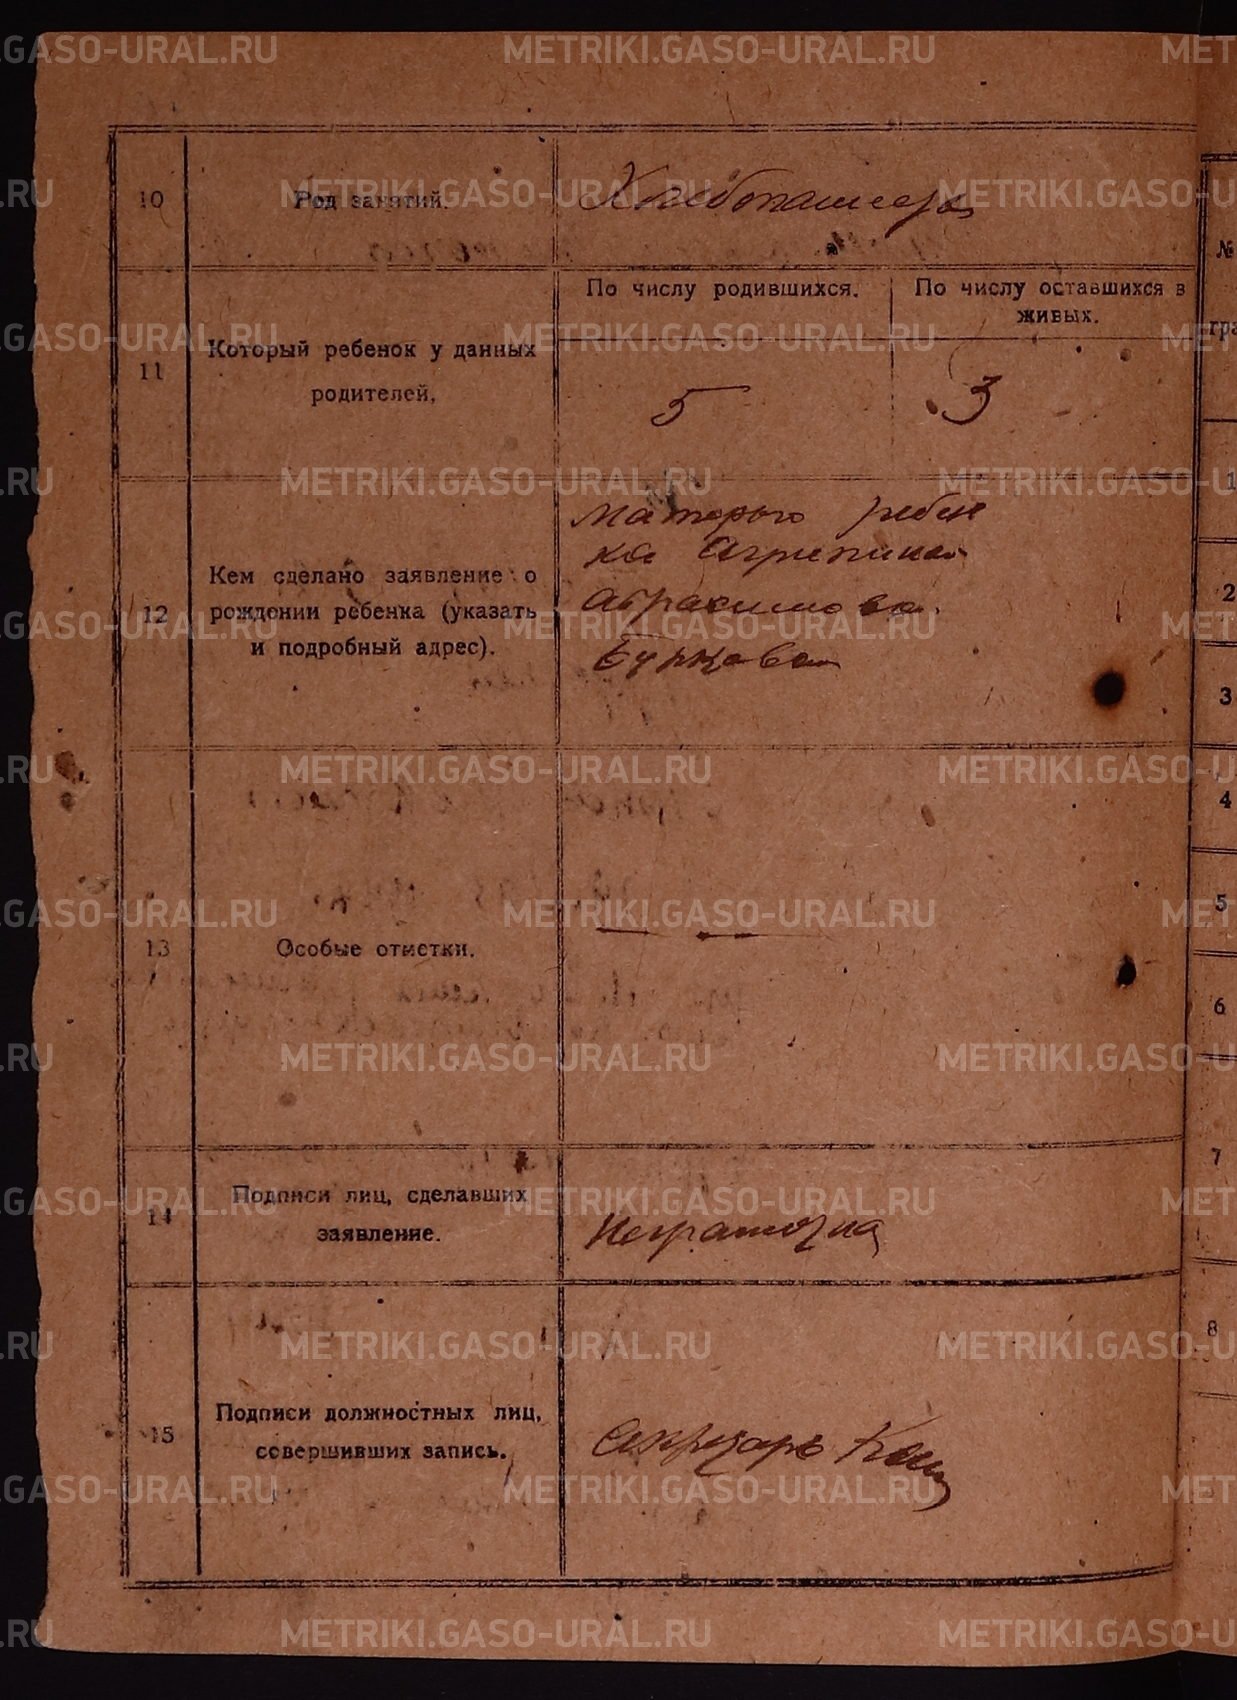 10
Род занятий.
Хлебопашецъ
11
Который ребенок у данных
родителей.
По числу родившихся.
По числу оставшихся в
живых.
5
3
12
Кем сделано заявление о
рождении ребенка (указать
и подробный адрес).
Матерью ребен
ка Агрепина
Абрасимова
Буркова
13
Особые отметки.
14
Подписи лиц, сделавших
заявление.
Неграмотна
15
Подписи должностных лиц,
совершивших запись.
Секретарь
№
гра
1
2
3
4
5
6
7
8
METRIKI.GASO-URAL.RU